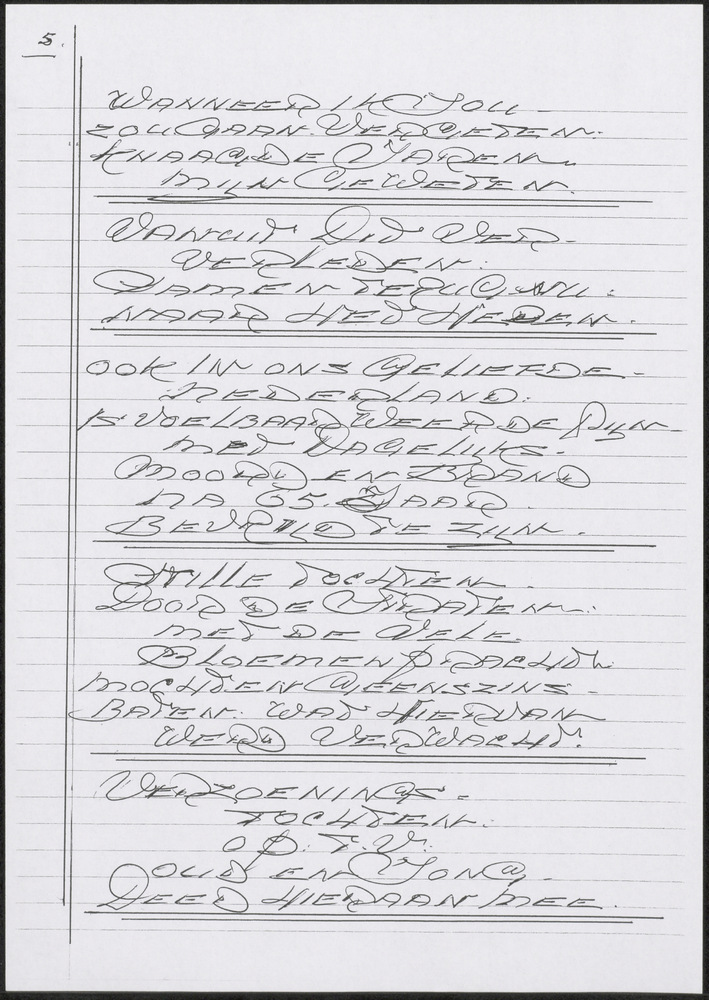 5.
WANNEER IK JOU
ZOU GAAN. VERGETEN:
KNAAGDE JAREN
MIJN GEWETEN.
VANUIT DIT VER-
VERLEDEN:
SAMEN TERUG. NU:
NAAR HET HEDEN.
OOK IN ONS GELIEFDE-
NEDERLAND.
IS VOELBAAR WEER DE PIJN
MET DAGELIJKS-
MOORD EN BRAND
NA 65. JAAR.
BEVRIJD TE ZIJN.
STILLE TOCHTEN.
DOOR DE STRATEN:
MET DE VELE
BLOEMENPRACHT
MOCHTEN GEENSZINS-
BATEN: WAT HIERVAN
WERD VERWACHT.
VERZOENINGS-
TOCHTEN:
OP. T.V.
OUD EN JONG,
DEED HIERAAN MEE.